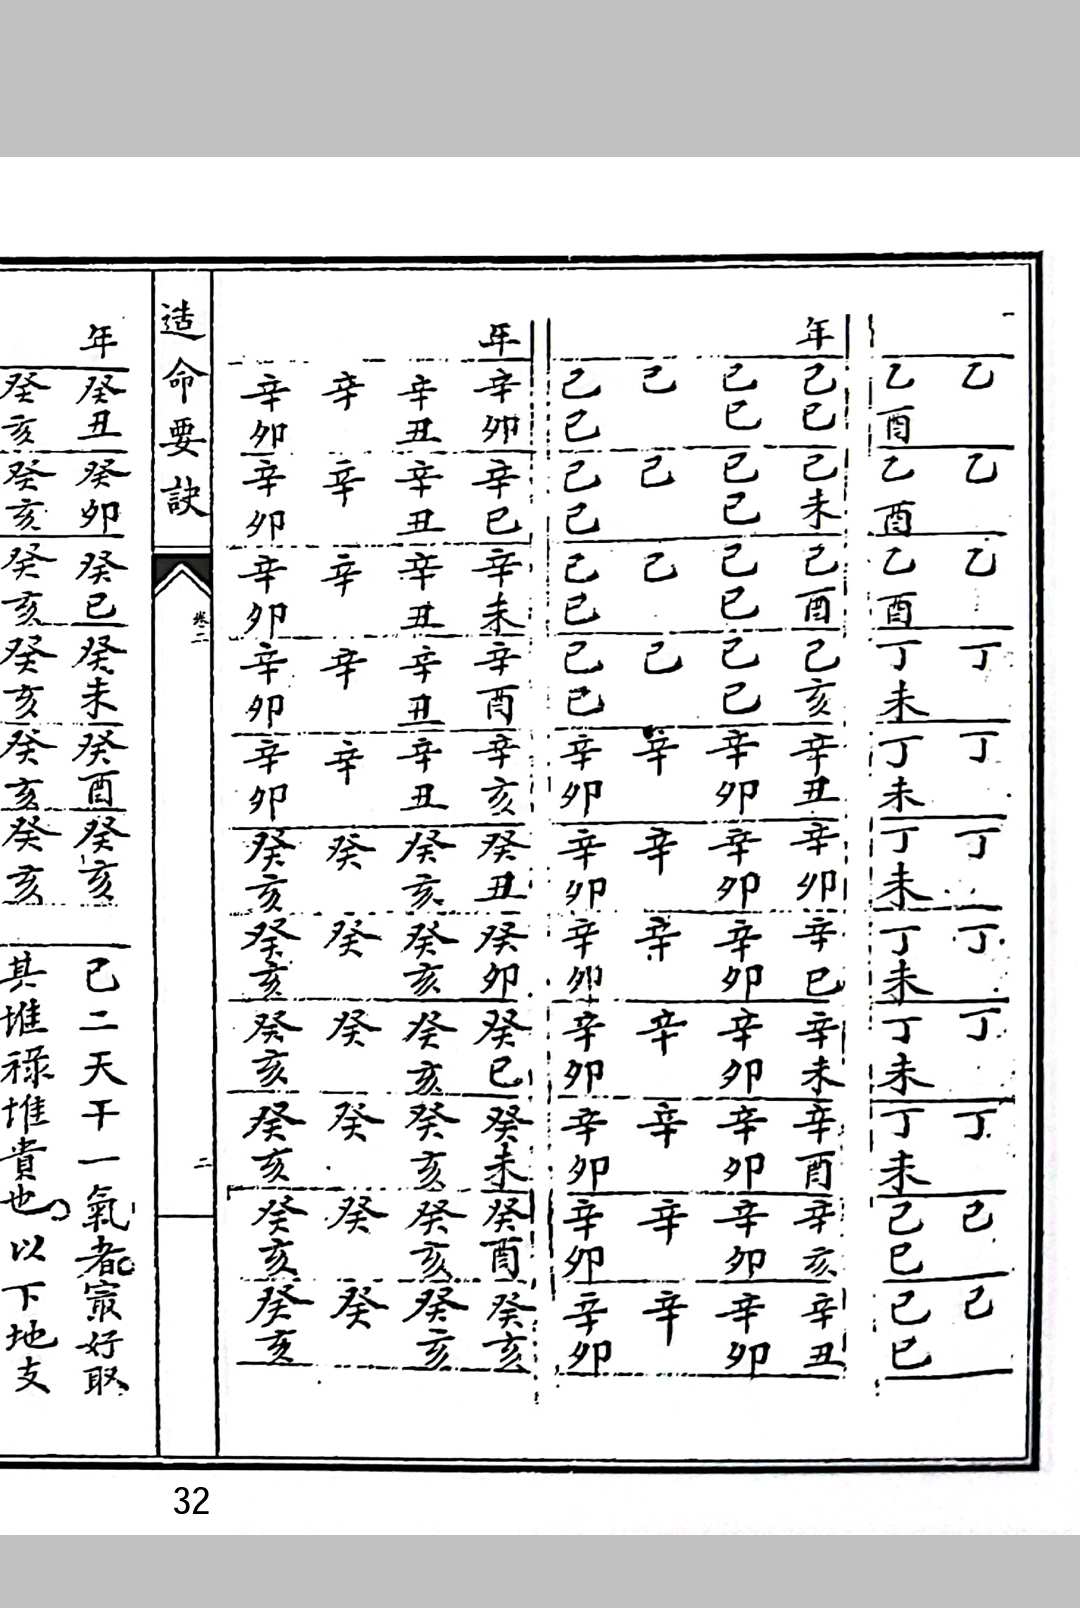 乙 乙 乙 丁 丁 丁 丁 丁 丁 己 己
乙酉 乙酉 乙酉 丁未 丁未 丁未 丁未 丁未 丁未 己巳 己巳
年 己巳 己未 己酉 己亥 辛丑 辛卯 辛巳 辛未 辛酉 辛亥 辛丑
己巳 己巳 己巳 己巳 辛卯 辛卯 辛卯 辛卯 辛卯 辛卯 辛卯
己 己 己 己 辛 辛 辛 辛 辛 辛 辛
己巳 己巳 己巳 己巳 辛卯 辛卯 辛卯 辛卯 辛卯 辛卯 辛卯
年 辛卯 辛巳 辛未 辛酉 辛亥 癸丑 癸卯 癸巳 癸未 癸酉 癸亥
辛丑 辛丑 辛丑 辛丑 辛丑 癸亥 癸亥 癸亥 癸亥 癸亥 癸亥
辛 辛 辛 辛 辛 癸 癸 癸 癸 癸 癸
辛卯 辛卯 辛卯 辛卯 辛卯 癸亥 癸亥 癸亥 癸亥 癸亥 癸亥
造命要訣 卷二 二
年 癸丑 癸卯 癸巳 癸未 癸酉 癸亥 已二天干一氣者㝡好取
癸亥 癸亥 癸亥 癸亥 癸亥 癸亥 其堆祿堆貴也 以下地支
32